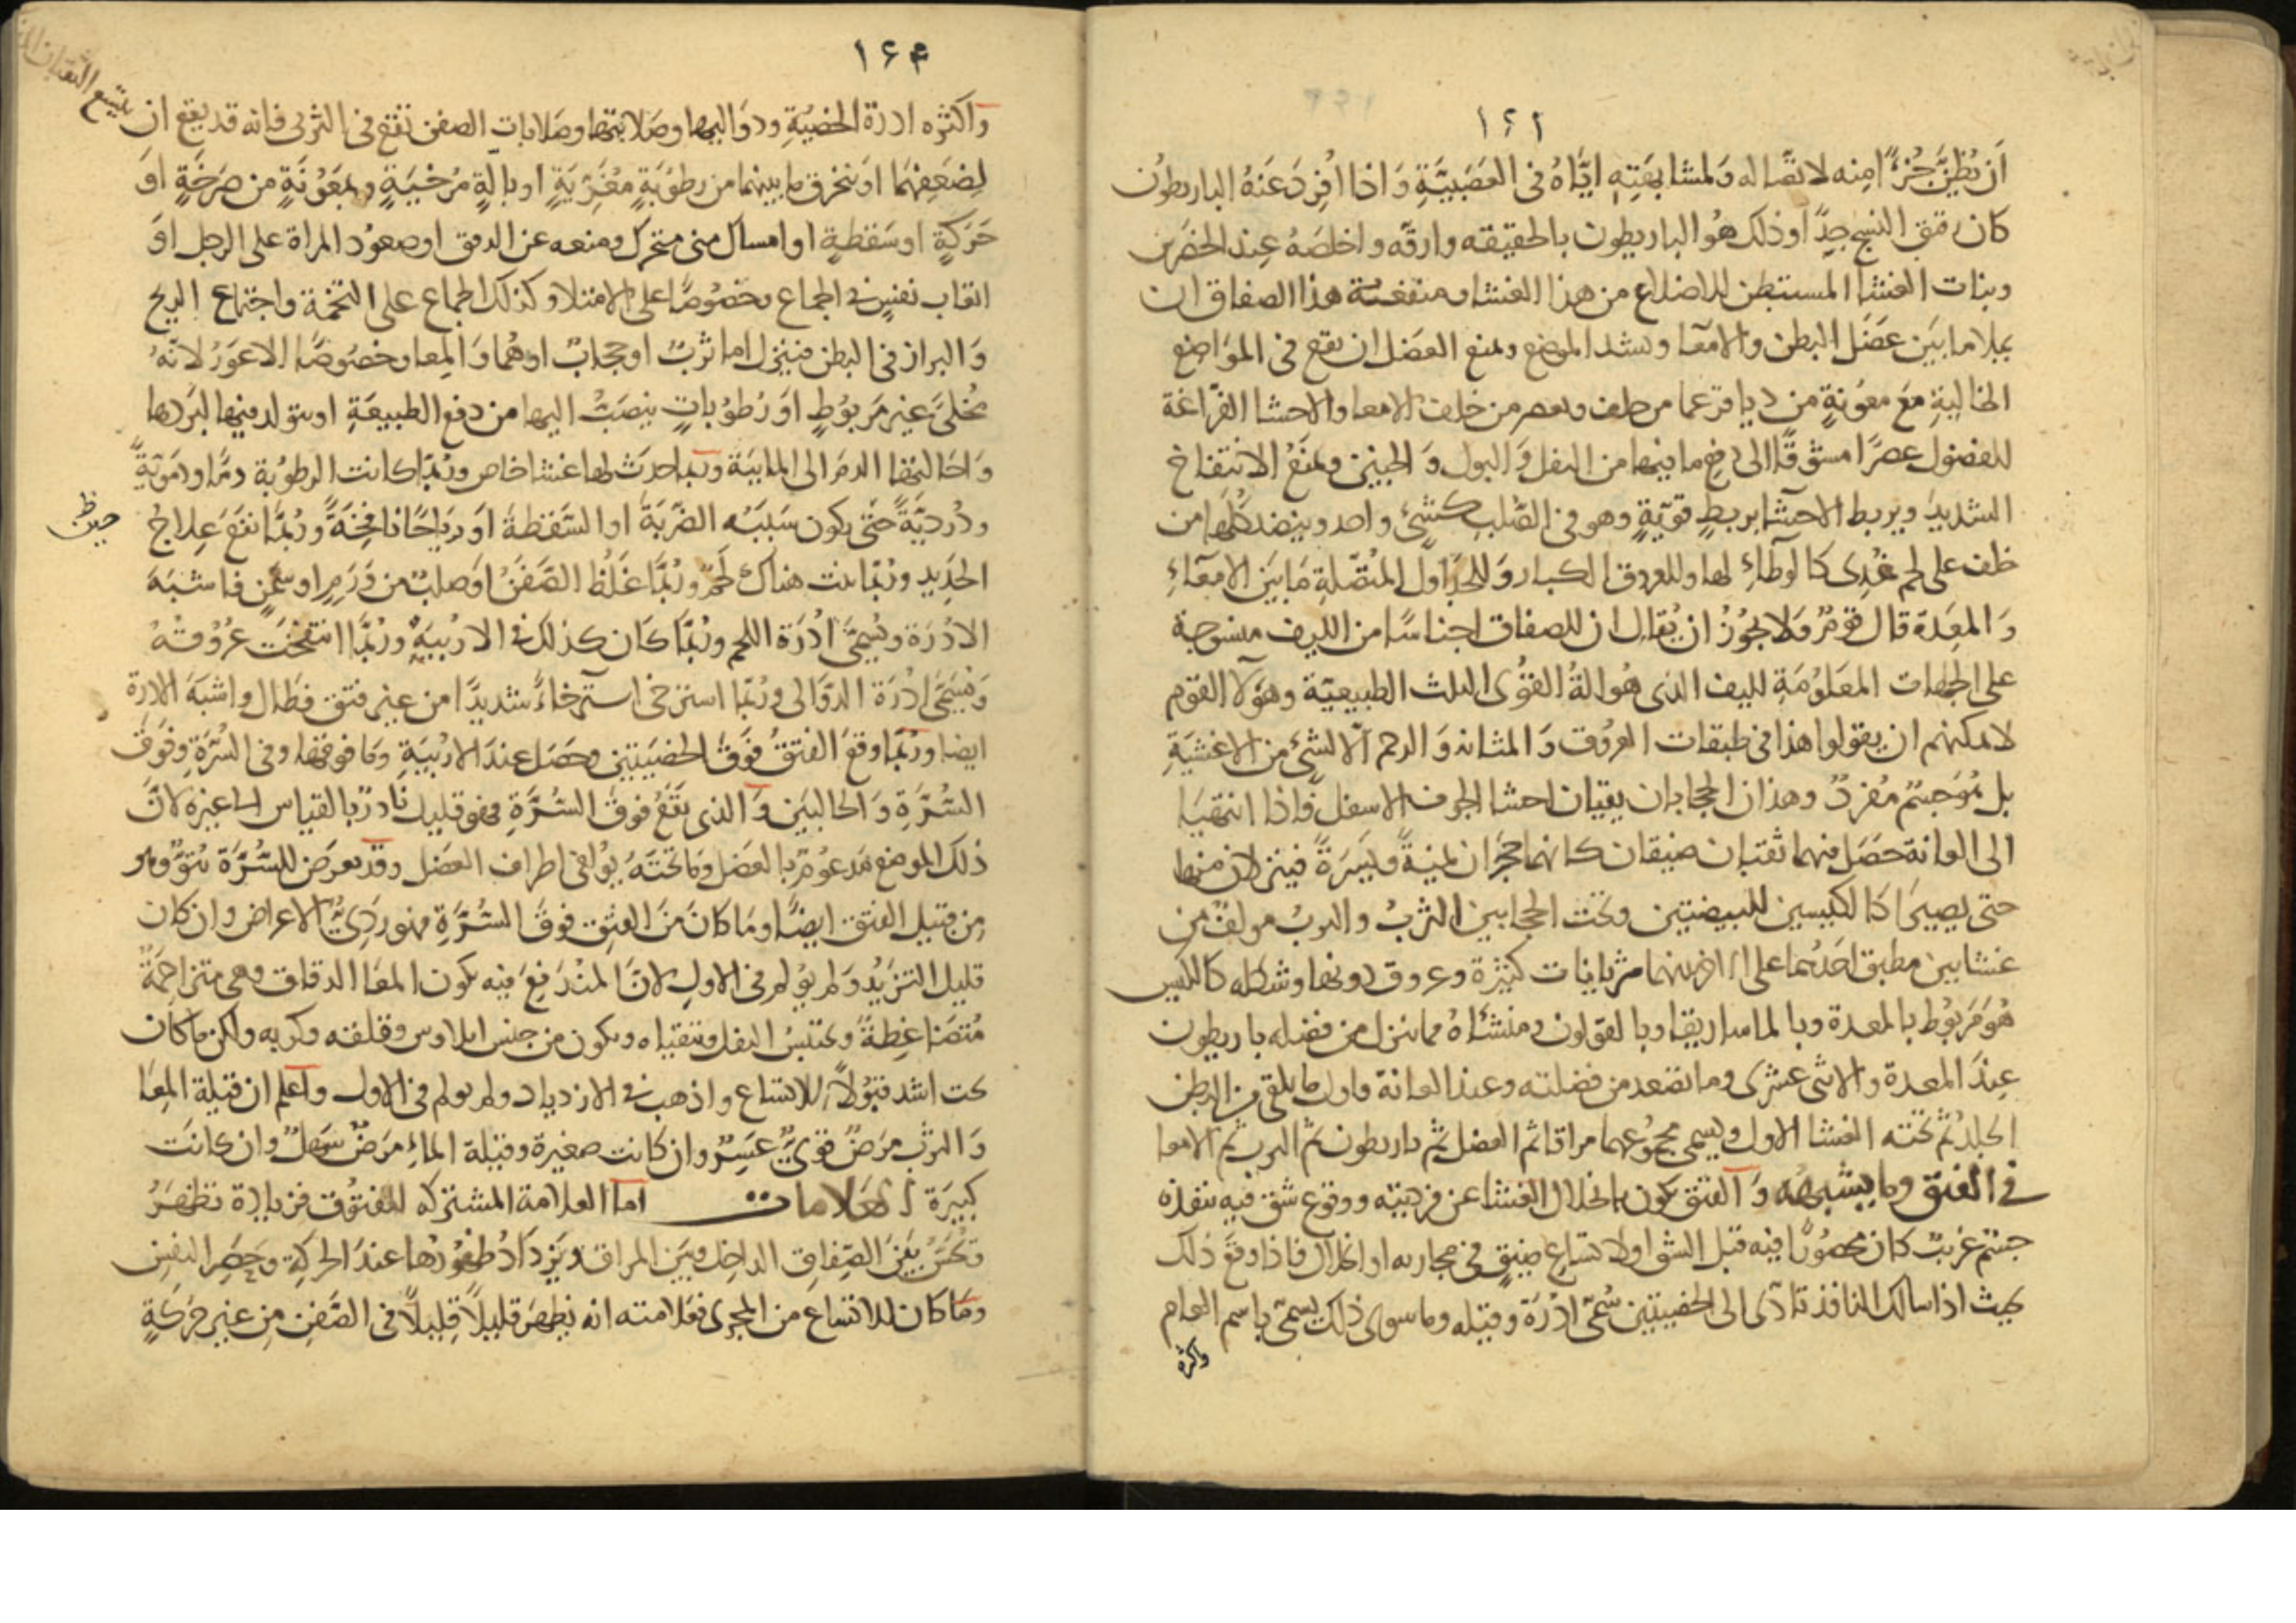 ١٤١
ان يُظنّ جُزءًا منه لاتصاله ولمشابهته ايّاه فى العصبيّة واذا افرد عنه الباريطون
كان رقيق النسج جدًا وذلك هو الباريطون بالحقيقه وارقّه واخلصه عند الخضرين
وبنات الغشا المستبطن للاضلاع من هذا الغشا ومنفعة هذا الصفاق ان
يملا ما بين عضل البطن والامعا ويشد الموضع ويمنع العضل ان يقع فى المواضع
الخالية مع معونة من ديافرغما من خلف ويعصر من خلف الامعا والاحشا الفراغة
للفضول عصرًا مسوقًا الى دفع ما فيها من الثفل والبول والجنين ويمنع الانتفاخ
الشديد ويربط الاحشا بربط قوية وهو فى الصلب كشئ واحد وينضد كلها من
خلف على لحم غددى كالوطاء لها وللعروق الكبار وللجداول المتصلة ما بين الامعاء
والمعدة قال قوم ولا يجوز ان يقال ان للصفاق اجناسًا من الليف منسوجة
على الجهات المعلومة لليف الذى هو الة القوى الثلث الطبيعيّة وهؤلا القوم
لا يمكنهم ان يقولوا هذا فى طبقات العروق والمثانه والرحم الا لشئ من الاغشية
بل هو جسم مفرد وهذان الحجابان يقيان احشا الجوف الاسفل فاذا انتهيا
الى العانة حصل فيهما ثقبتان ضيقتان كانهما حجران يمنةً ويسرةً فينزلان منها
حتى يصيرا كالكيسين للبيضتين وتحت الحجابين الثرب والثرب مولف من
غشايين مطبق احدهما على الاخر بينهما شريانات كثيرة وعروق دونها وشكله كالكيس
هو مربوط بالمعدة وبالماساريقا وبالقولون ومنشاه مما ينزل من فضله باريطون
عند المعدة والاثنى عشرى وما يصعد من فضلته وعند العانة فاول ما يلقى من البطن
الجلد ثم تحته الغشا الاول ويسمى مجموعهما مراقا ثم العضل ثم باريطون ثم الثرب ثم الامعا
فى الفتق وما يشبهه والفتق يكون بانحلال الغشا عن فرديته ووقوع شق فيه ينفذه
جسم غريب كان محصورًا فيه قبل الشق او لاتساع ضيق فى مجاريه او انحلال فاذا وقع ذلك
بحيث اذا سالك النافذ تادى الى الخصيتين سُمّى ادرة وقيله وما سوى ذلك يسمى باسم العام
واكثره
١٤٢
واكثره ادرة الخصية ودواليها وصلابتها وصلابات الصفن تقع فى الثرب فانه قد يقع ان يتسع الثقبان
لضعفهما او ينخرق ما بينهما من رطوبة مغرّية او بالة مرخية وبمعونة من صرخة او
حركة او سقطة او امساك منى متحرك ومنعه عن الدفق او صعود المراة على الرجل او
اتعاب نفس فى الجماع وخصوصًا على الامتلا وكذلك الجماع على التخمة واجتماع الريح
والبراز فى البطن فينزل اما ثرب او حجاب او هما والمعا وخصوصًا الاعور لانه
مخلّى غير مربوط او رطوبات ينصب اليها من دفع الطبيعة او يتولد فيها لبردها
واحالتها الدم الى المائية وربما حدث لها غشا خاص وربما كانت الرطوبة دمًا ودموية
ودُرديّة حين يكون سببه الضربة او السقطة او رياحًا نافخة وربما انتفع علاج
حين ظ
الحديد وربما نبت هناك لحم وربما غلظ الصفن او صلب من ورم او سمن فاشبه
الادرة ويسمى ادرة اللحم وربما كان كذلك فى الاربية وربما انتفخت عروقه
ويسمّى ادرة الدوالى وربما استرخى استرخاءً شديدًا من غير فتق فطال واشبه الادرة
ايضا وربما وقع الفتق فوق الخصيتين وحصل عند الاربية وما فوقها وفى السرة وفوق
السرة والحالبين والذى يقع فوق السرة فهو قليل نادر بالقياس الى غيره لان
ذلك الموضع مدعوم بالعضل وما تحته يوافى اطراف العضل وقد يعرض للسرة نتوّ وهو
من قبيل الفتق ايضًا وما كان من الفتق فوق السرة فهو ردىّ الاعراض وان كان
قليل التزيد ولم يؤلم فى الاول لان المندفع فيه يكون المعا الدقاق وهى متزاحمة
متضاغطة ويحتبس الثفل وتتقياه ويكون من جنس ايلاوس وقلقه وكربه ولكن ما كان
تحت اشد قبولاً للاتساع واذهب فى الازدياد ولم يولم فى الاول واعلم ان قيلة المعا
والثرب مرض قوىّ عسر وان كانت صغيرة وقيلة الماء مرض سهل وان كانت
كبيرة العلامات اما العلامة المشتركه للفتوق فزيادة تظهر
وتحس بين الصفاق الداخل وبين المراق ويزداد ظهورها عند الحركة وحصر النفس
وما كان للاتساع من المجرى فعلامته انه يظهر قليلاً قليلاً فى الصفن من غير حركة